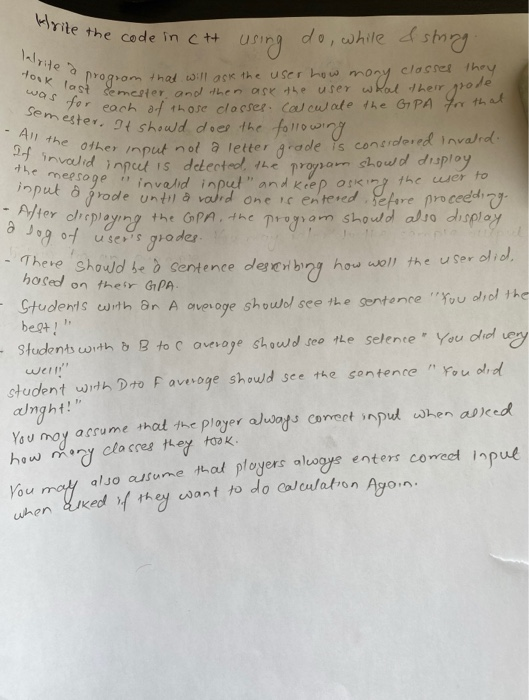 Write the code in C++ using do, while & string.
Write a program that will ask the user how many classes they
took last semester and then ask the user what their grade
was for each of those classes. Calculate the GPA for that
semester. It should does the following
- All the other input not a letter grade is considered Invalid.
If invalid input is detected, the program should display
the message "invalid input" and keep asking the user to
input a grade until a valid one is entered before proceeding.
- After displaying the GPA, the program should also display
a log of user's grades.
- There should be a sentence describing how well the user did,
based on their GPA.
- Students with an A average should see the sentence "You did the
best!"
- Students with a B to C average should see the setence "You did very
well!"
student with D to F average should see the sentence "You did
alright!"
You may assume that the player always correct input when asked
how many classes they took.
You may also assume that players always enters correct input
when asked if they want to do calculation Again.